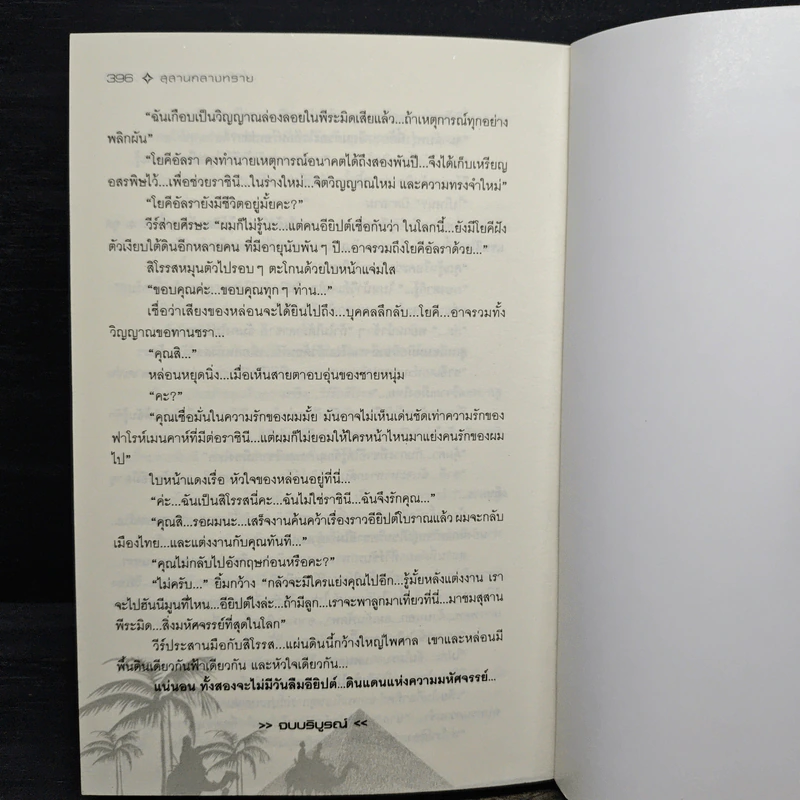 396 ✧ สุสานกลางทราย
“ฉันเกือบเป็นวิญญาณล่องลอยในพีระมิดเสียแล้ว...ถ้าเหตุการณ์ทุกอย่าง
พลิกผัน”
“โยคีอัลรา คงทำนายเหตุการณ์อนาคตได้ถึงสองพันปี...จึงได้เก็บเหรียญ
อสรพิษไว้...เพื่อช่วยราชินี...ในร่างใหม่...จิตวิญญาณใหม่ และความทรงจำใหม่”
“โยคีอัลรายังมีชีวิตอยู่มั้ยคะ?”
วีร์ส่ายศีรษะ “ผมก็ไม่รู้นะ...แต่คนอียิปต์เชื่อกันว่า ในโลกนี้...ยังมีโยคีฝัง
ตัวเงียบใต้ดินอีกหลายคน ที่มีอายุนับพันๆ ปี...อาจรวมถึงโยคีอัลราด้วย...”
สิโรรสหมุนตัวไปรอบๆ ตะโกนด้วยใบหน้าแจ่มใส
“ขอบคุณค่ะ...ขอบคุณทุกๆ ท่าน...”
เชื่อว่าเสียงของหล่อนจะได้ยินไปถึง...บุคคลลึกลับ...โยคี...อาจรวมทั้ง
วิญญาณขอทานชรา...
“คุณสิ...”
หล่อนหยุดนิ่ง...เมื่อเห็นสายตาอบอุ่นของชายหนุ่ม
“คะ?”
“คุณเชื่อมั่นในความรักของผมมั้ย มันอาจไม่เห็นเด่นชัดเท่าความรักของ
ฟาโรห์เมนคาห์ที่มีต่อราชินี...แต่ผมก็ไม่ยอมให้ใครหน้าไหนมาแย่งคนรักของผม
ไป”
ใบหน้าแดงเรื่อ หัวใจของหล่อนอยู่ที่นี่...
“ค่ะ...ฉันเป็นสิโรรสนี่คะ...ฉันไม่ใช่ราชินี...ฉันจึงรักคุณ...”
“คุณสิ...รอผมนะ...เสร็จงานค้นคว้าเรื่องราวอียิปต์โบราณแล้ว ผมจะกลับ
เมืองไทย...และแต่งงานกับคุณทันที...”
“คุณไม่กลับไปอังกฤษก่อนหรือคะ?”
“ไม่ครับ...” ยิ้มกว้าง “กลัวจะมีใครแย่งคุณไปอีก...รู้มั้ยหลังแต่งงาน เรา
จะไปฮันนีมูนที่ไหน...อียิปต์ไงล่ะ...ถ้ามีลูก...เราจะพาลูกมาเที่ยวที่นี่...มาชมสุสาน
พีระมิด...สิ่งมหัศจรรย์ที่สุดในโลก”
วีร์ประสานมือกับสิโรรส...แผ่นดินนี้กว้างใหญ่ไพศาล เขาและหล่อนมี
พื้นดินเดียวกันฟ้าเดียวกัน และหัวใจเดียวกัน...
แน่นอน ทั้งสองจะไม่มีวันลืมอียิปต์...ดินแดนแห่งความมหัศจรรย์...
>> จบบริบูรณ์ <<